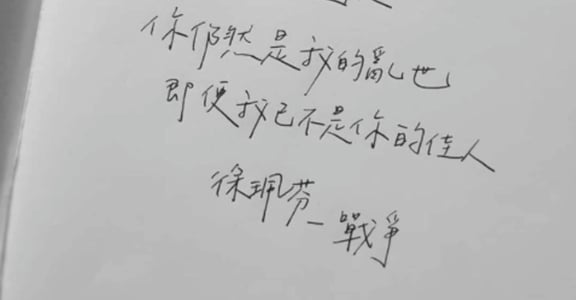 你仍然是我的亂世
即便我已不是你的佳人
徐珮芬_戰爭